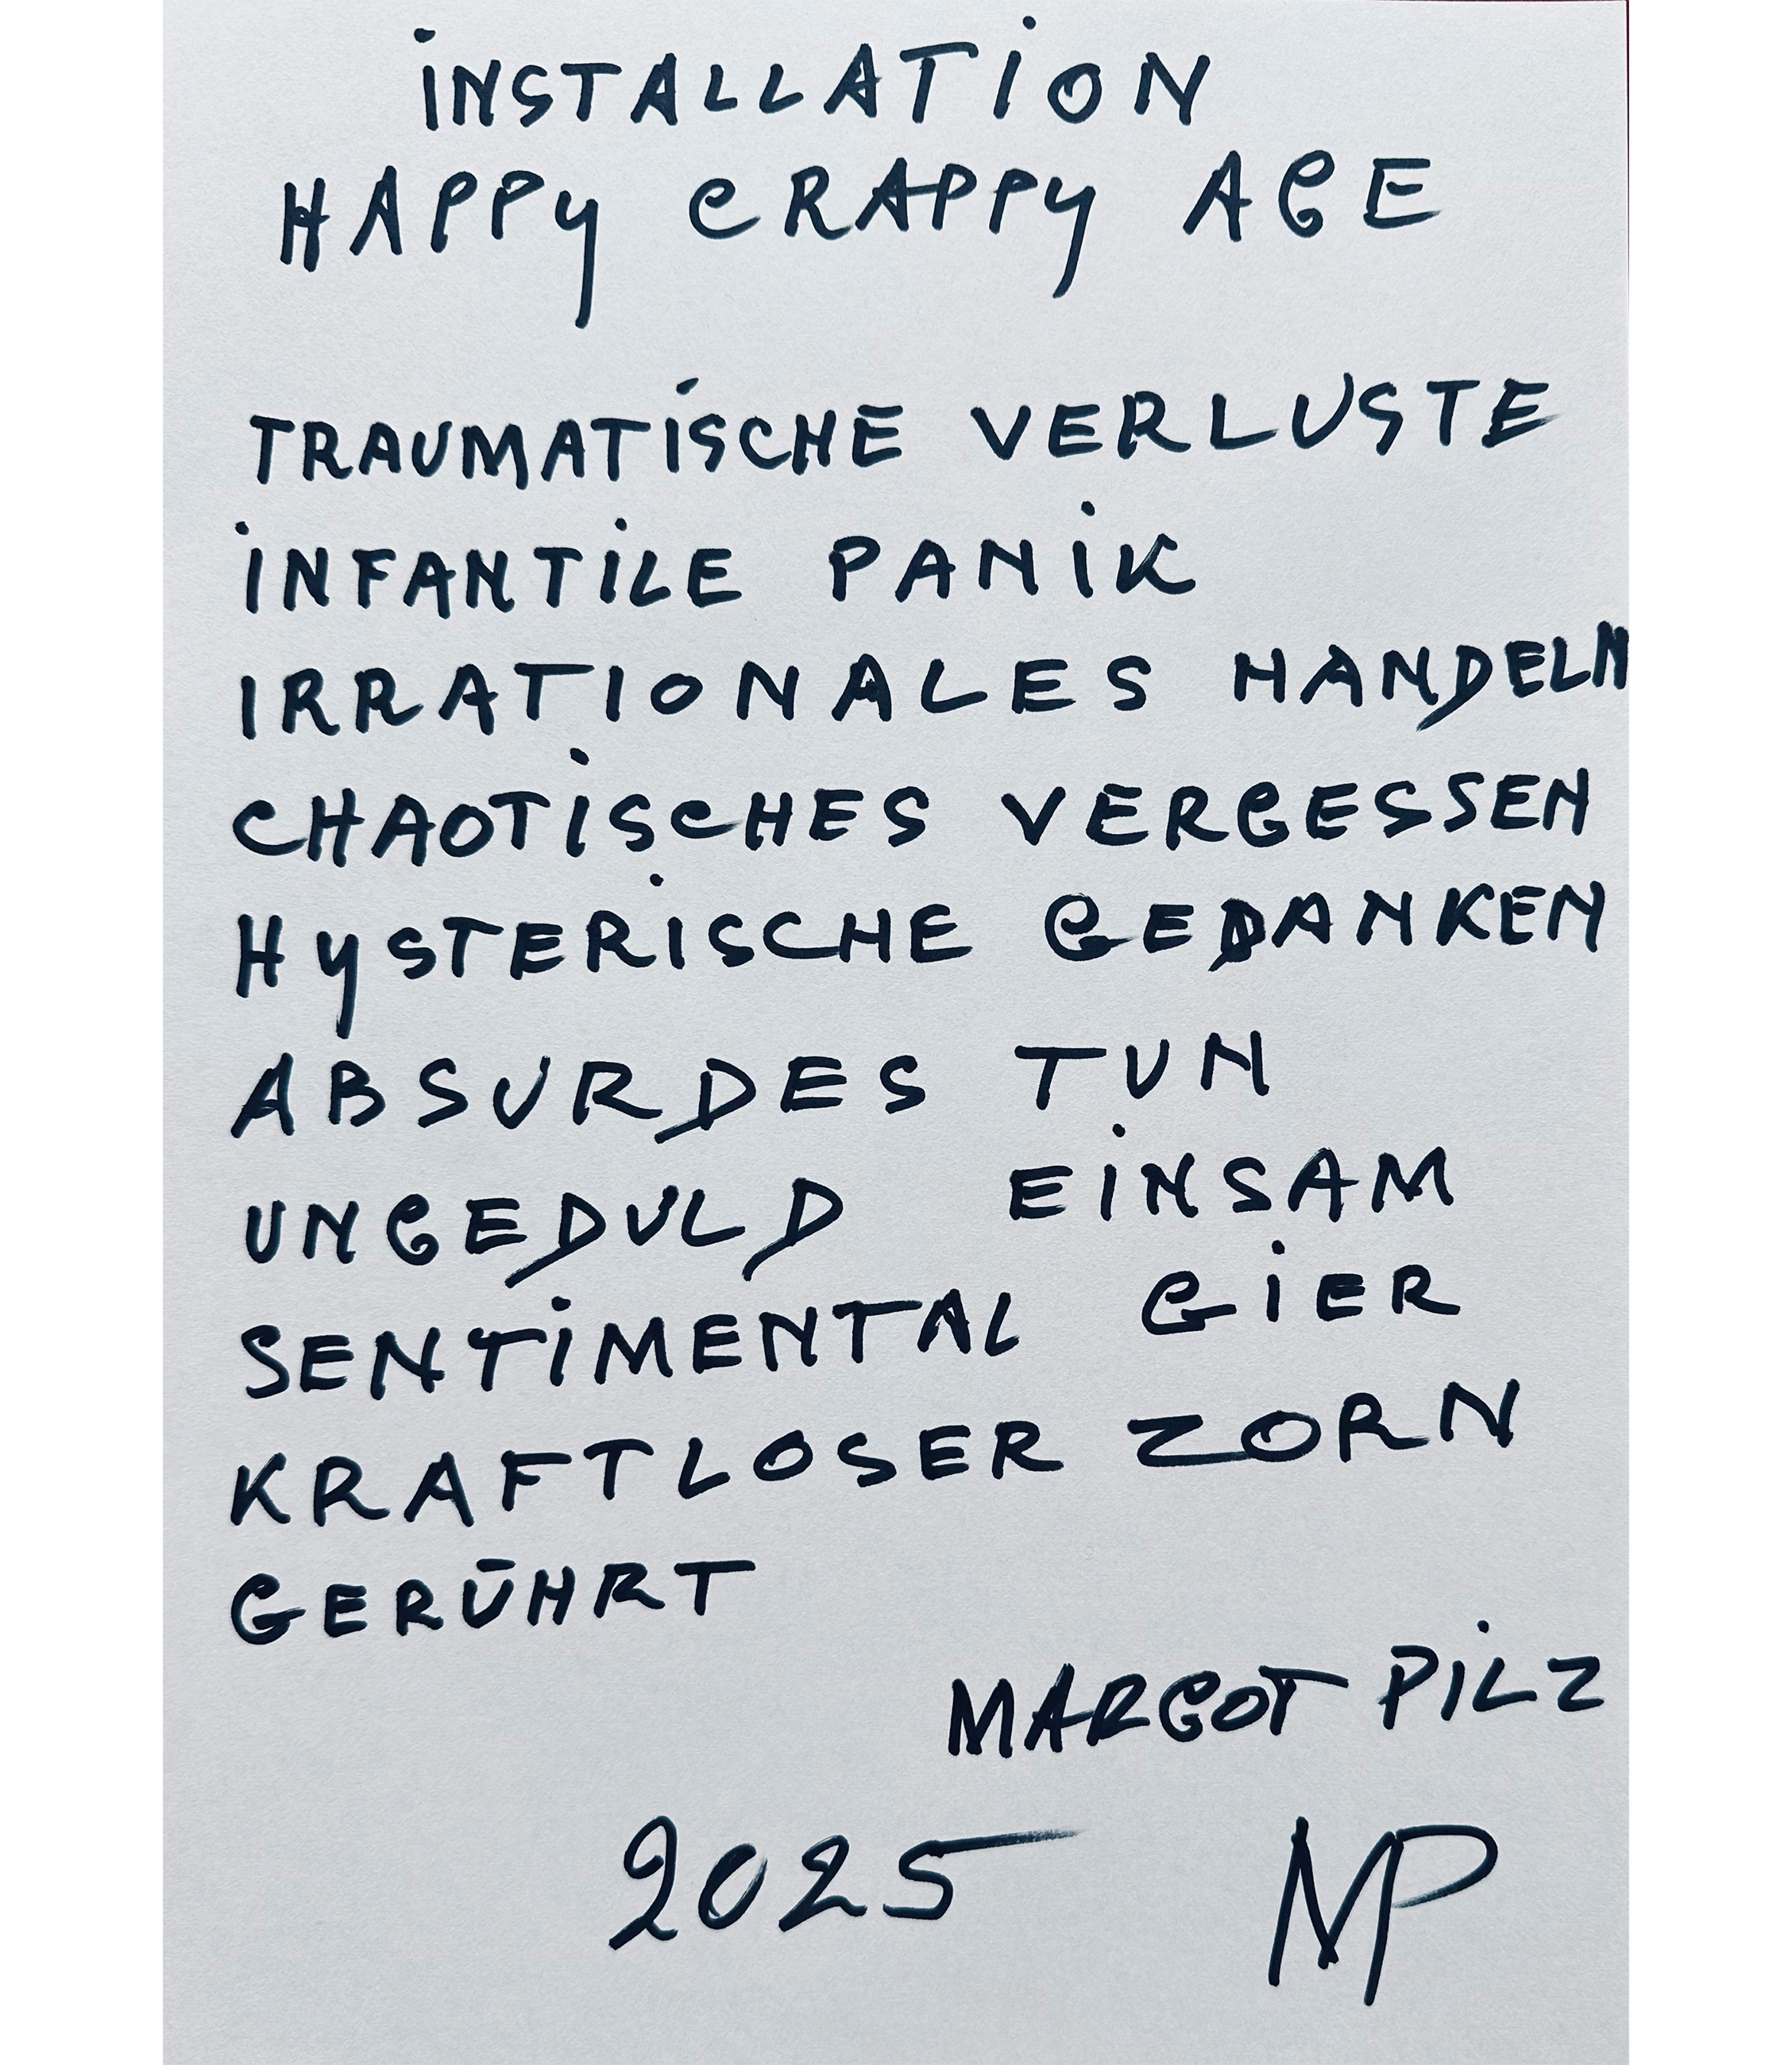 INSTALLATION
HAPPY CRAPPY AGE
TRAUMATISCHE VERLUSTE
INFANTILE PANIK
IRRATIONALES HANDELN
CHAOTISCHES VERGESSEN
HYSTERISCHE GEDANKEN
ABSURDES TUN
UNGEDULD EINSAM
SENTIMENTAL GIER
KRAFTLOSER ZORN
GERÜHRT
MARGOT PILZ
2025 MP